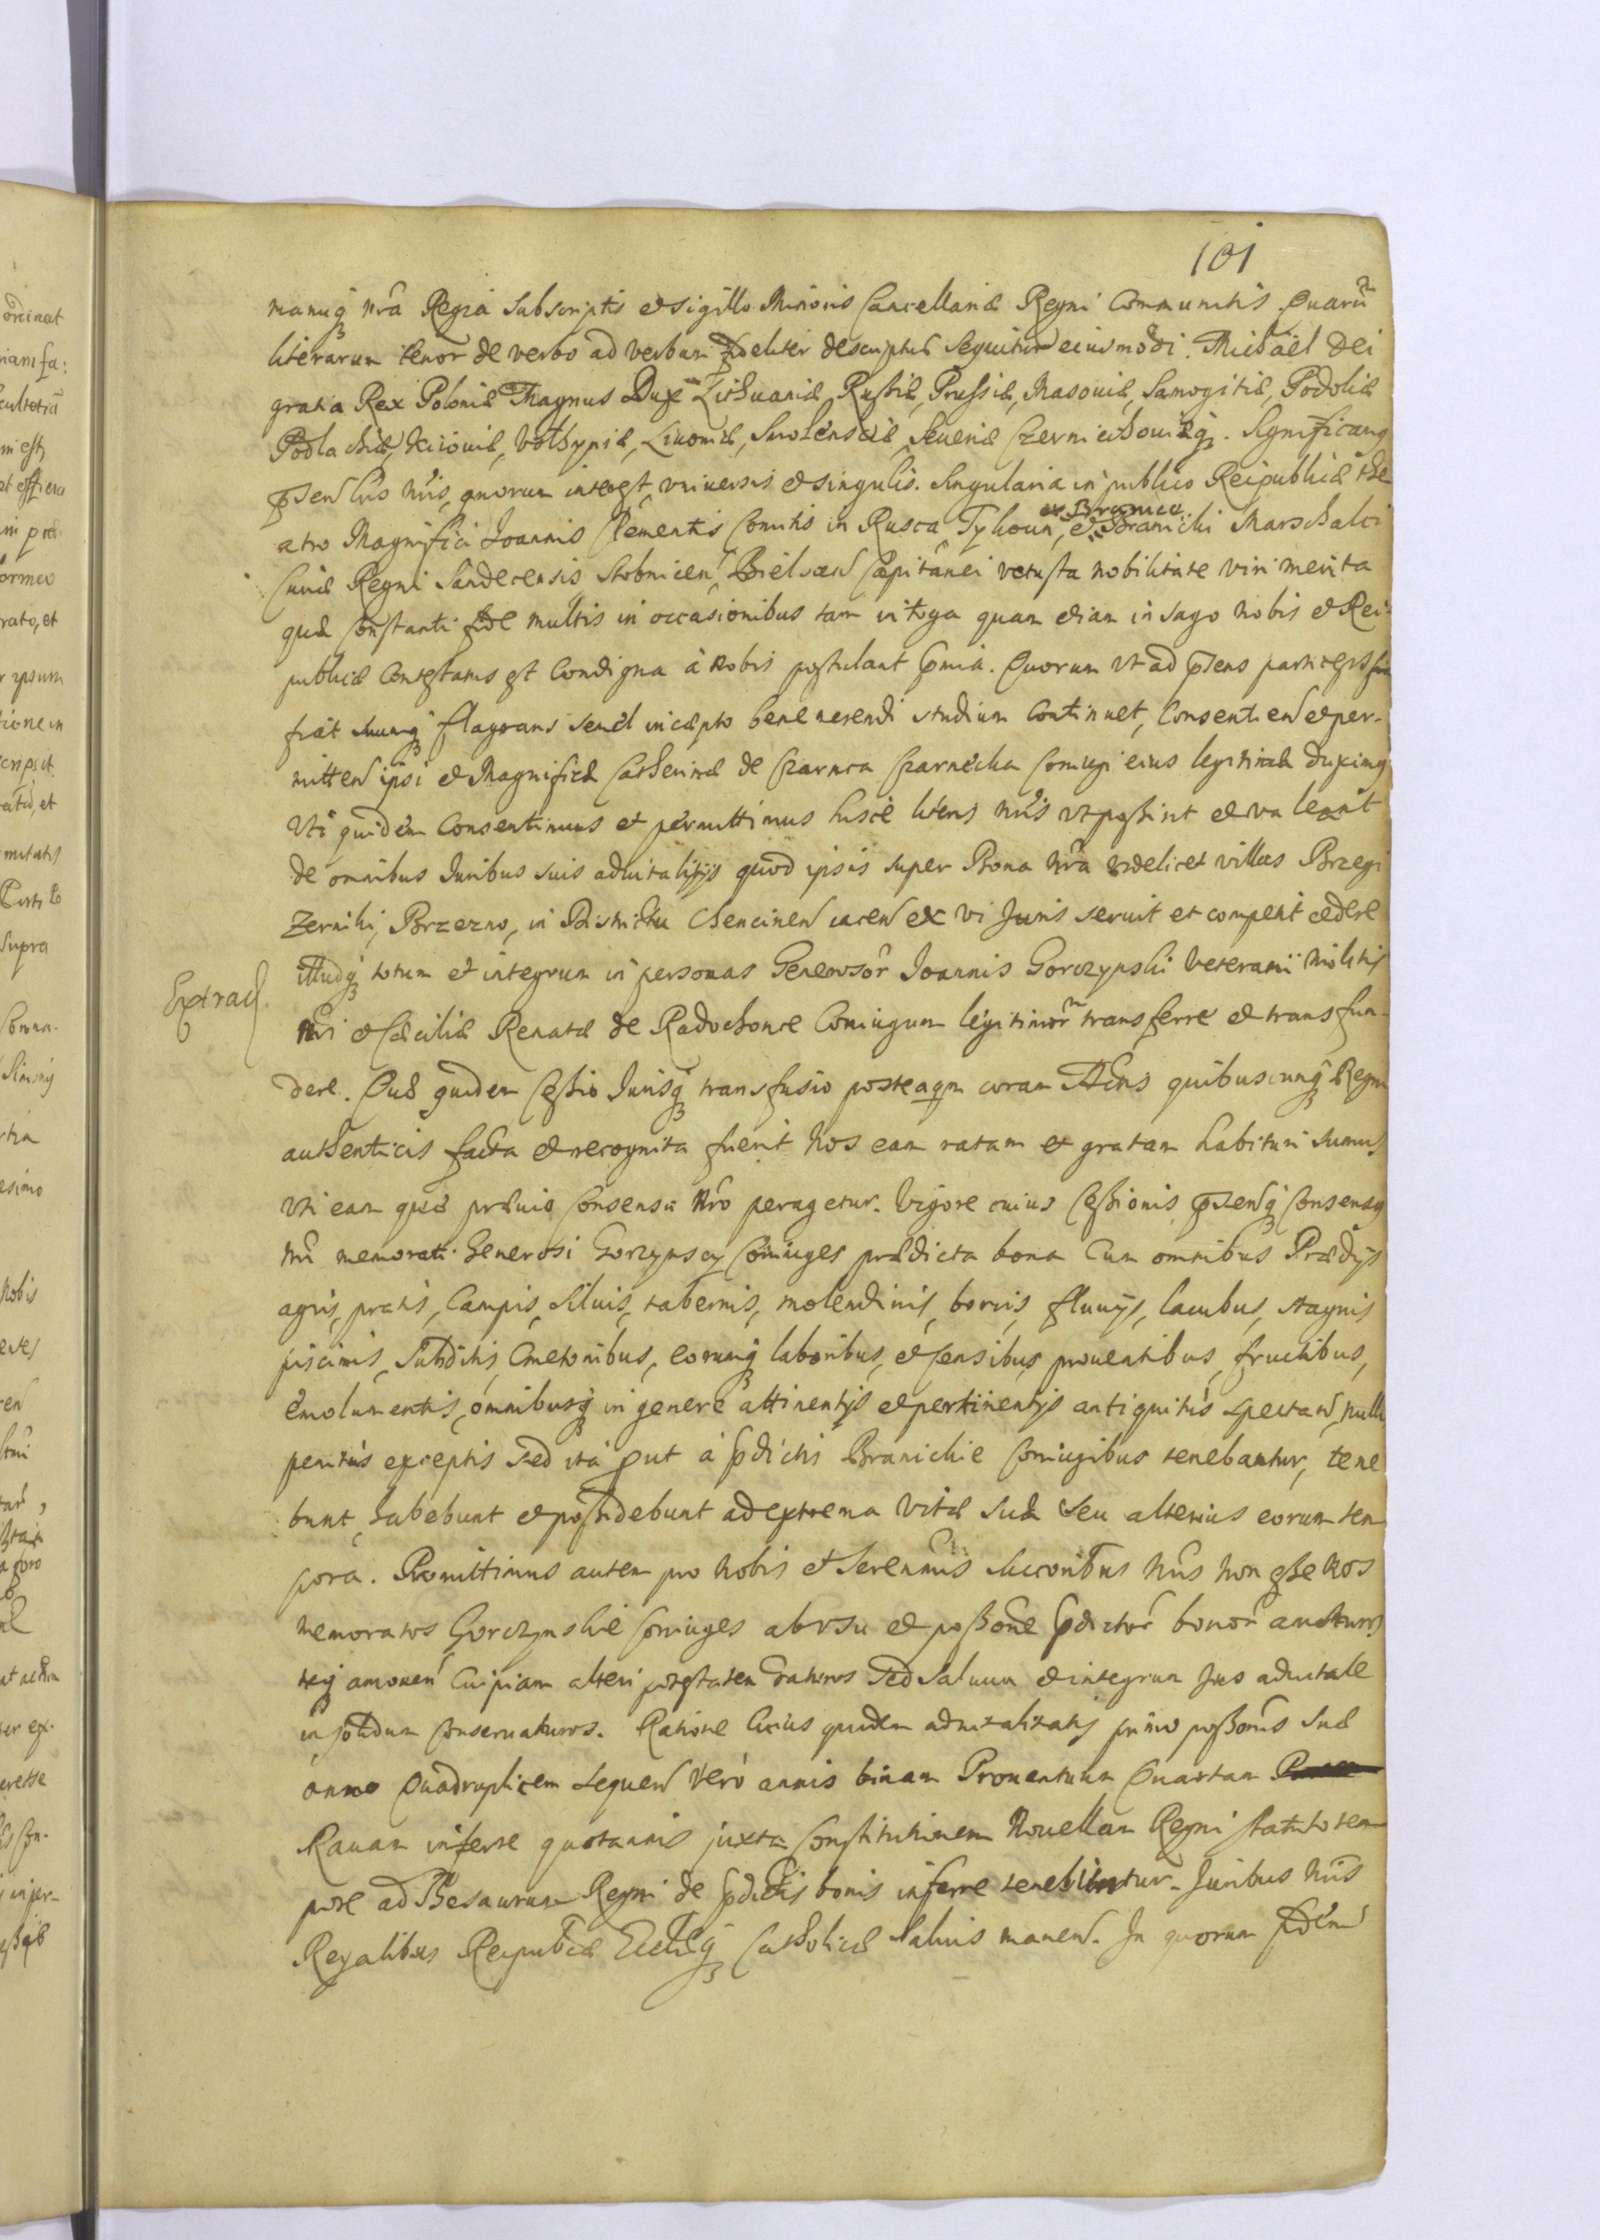 101
manuq̃ nrã Regia subscriptis et sigillo Minoris Cancellariæ Regni Communitis. Quarũ
literarum tenor de verbo ad verbum fideliter descriptus sequitur eiusmodi. Michaël Dei
gratia Rex Poloniæ Magnus Dux Lithuaniæ, Russiæ, Prussiæ, Masouiæ, Samogitiæ, Podoliæ
Podlachiæ, Kiiouiæ, Volhyniæ, Liuoniæ, Smolensciæ, Seueriæ Czerniechouiæq̃. Significamq
pñsen Lris nr̃is, quorum interest, vniuersis et singulis. Singularia in publico Reipublicæ the
ex Branice
atro Magnifici Joannis Clementis Comitis in Rusca, Tykocin, et Branicki Marschalci
Curiæ Regni Sandecensis Stobnicen Bielscen Capitanei vetusta nobilitate viri merita
quæ constanti fide multis in occasionibus tam in toga quam etiam in sago nobis et Rei
publicæ contestatus est condigna à nobis postulant pr̃mia. Quorum vt ad pñsens particeps
fiat suumq̃ flagrans semel incæpto bene merendi studium continuet, consentien et per-
mitten ipsi et Magnificæ Catherinæ de Czarnca Czarnecka coniugi eius legitimæ duximq
vti quidem consentimus et permittimus hisce literis nr̃is vt possint et valeant
de omnibus Iuribus suis aduitalitijs quod ipsis super Bona nrã videlicet villas Brzegi
Zerniki, Brzezno, in Districtu Chencinen iacen ex vi Juris seruit et competit cedere
illudq̃ totum et integrum in personas Generosor̃ Joannis Gorczynski veterani militis
Extrad.
nr̃i et Cæciliæ Renatæ de Radochonce Coniugum legitimor̃ transferre et transfun-
dere. Quæ quidem Cessio Iurisq̃ transfusio posteaqm coram Actis quibuscunq̃ Regni
authenticis facta et recognita fuerit nos eam ratam et gratam habituri sumus
vti eam quæ præuio consensu nr̃o peragetur. Vigore cuius Cessionis pñsenq̃ Consensq
nr̃i memorati Generosi Gorczynscy Coniuges prædicta bona cum omnibus Prædijs
agris, pratis, campis, siluis, tabernis, molendinis, boreis, fluuijs, lacubus, stagnis
piscinis, subditis, Cmetonibus, eorumq̃ laboribus, et censibus, prouentibus, fructibus,
emolumentis, omnibusq̃ in genere attinentijs et pertinentijs antiquitus spectan, nullis
penitus exceptis sed ita put à pr̃dictis Branickie Coniugibus tenebantur, tene
bunt, habebunt et possidebunt ad extrema vitæ suæ seu alterius eorum tem
pora. Promittimus autem pro nobis et Serenmis Succoribus nr̃is non esse nos
memoratos Gorczynskie Coniuges ab vsu et possone pr̃dictor̃ bonor̃ amoturos
neq̃ amouen cuipiam alteri potestatem daturos sed saluum et integrum Jus aduitale
in solidum conseruaturos. Ratione cuius quidem aduitalitatis primo possonis suæ
anno quadruplicem sequen verò annis binam Prouentuum Quartam
Rauam inferre quotannis juxta Constitutionem Nouellam Regni statuto tem
pore ad Thesaurum Regni de pr̃dictis bonis inferre tenebuntur. Juribus nr̃is
Regalibus Reipublicæ Ecclæq̃ Catholicæ Saluis manen. In quorum fidem